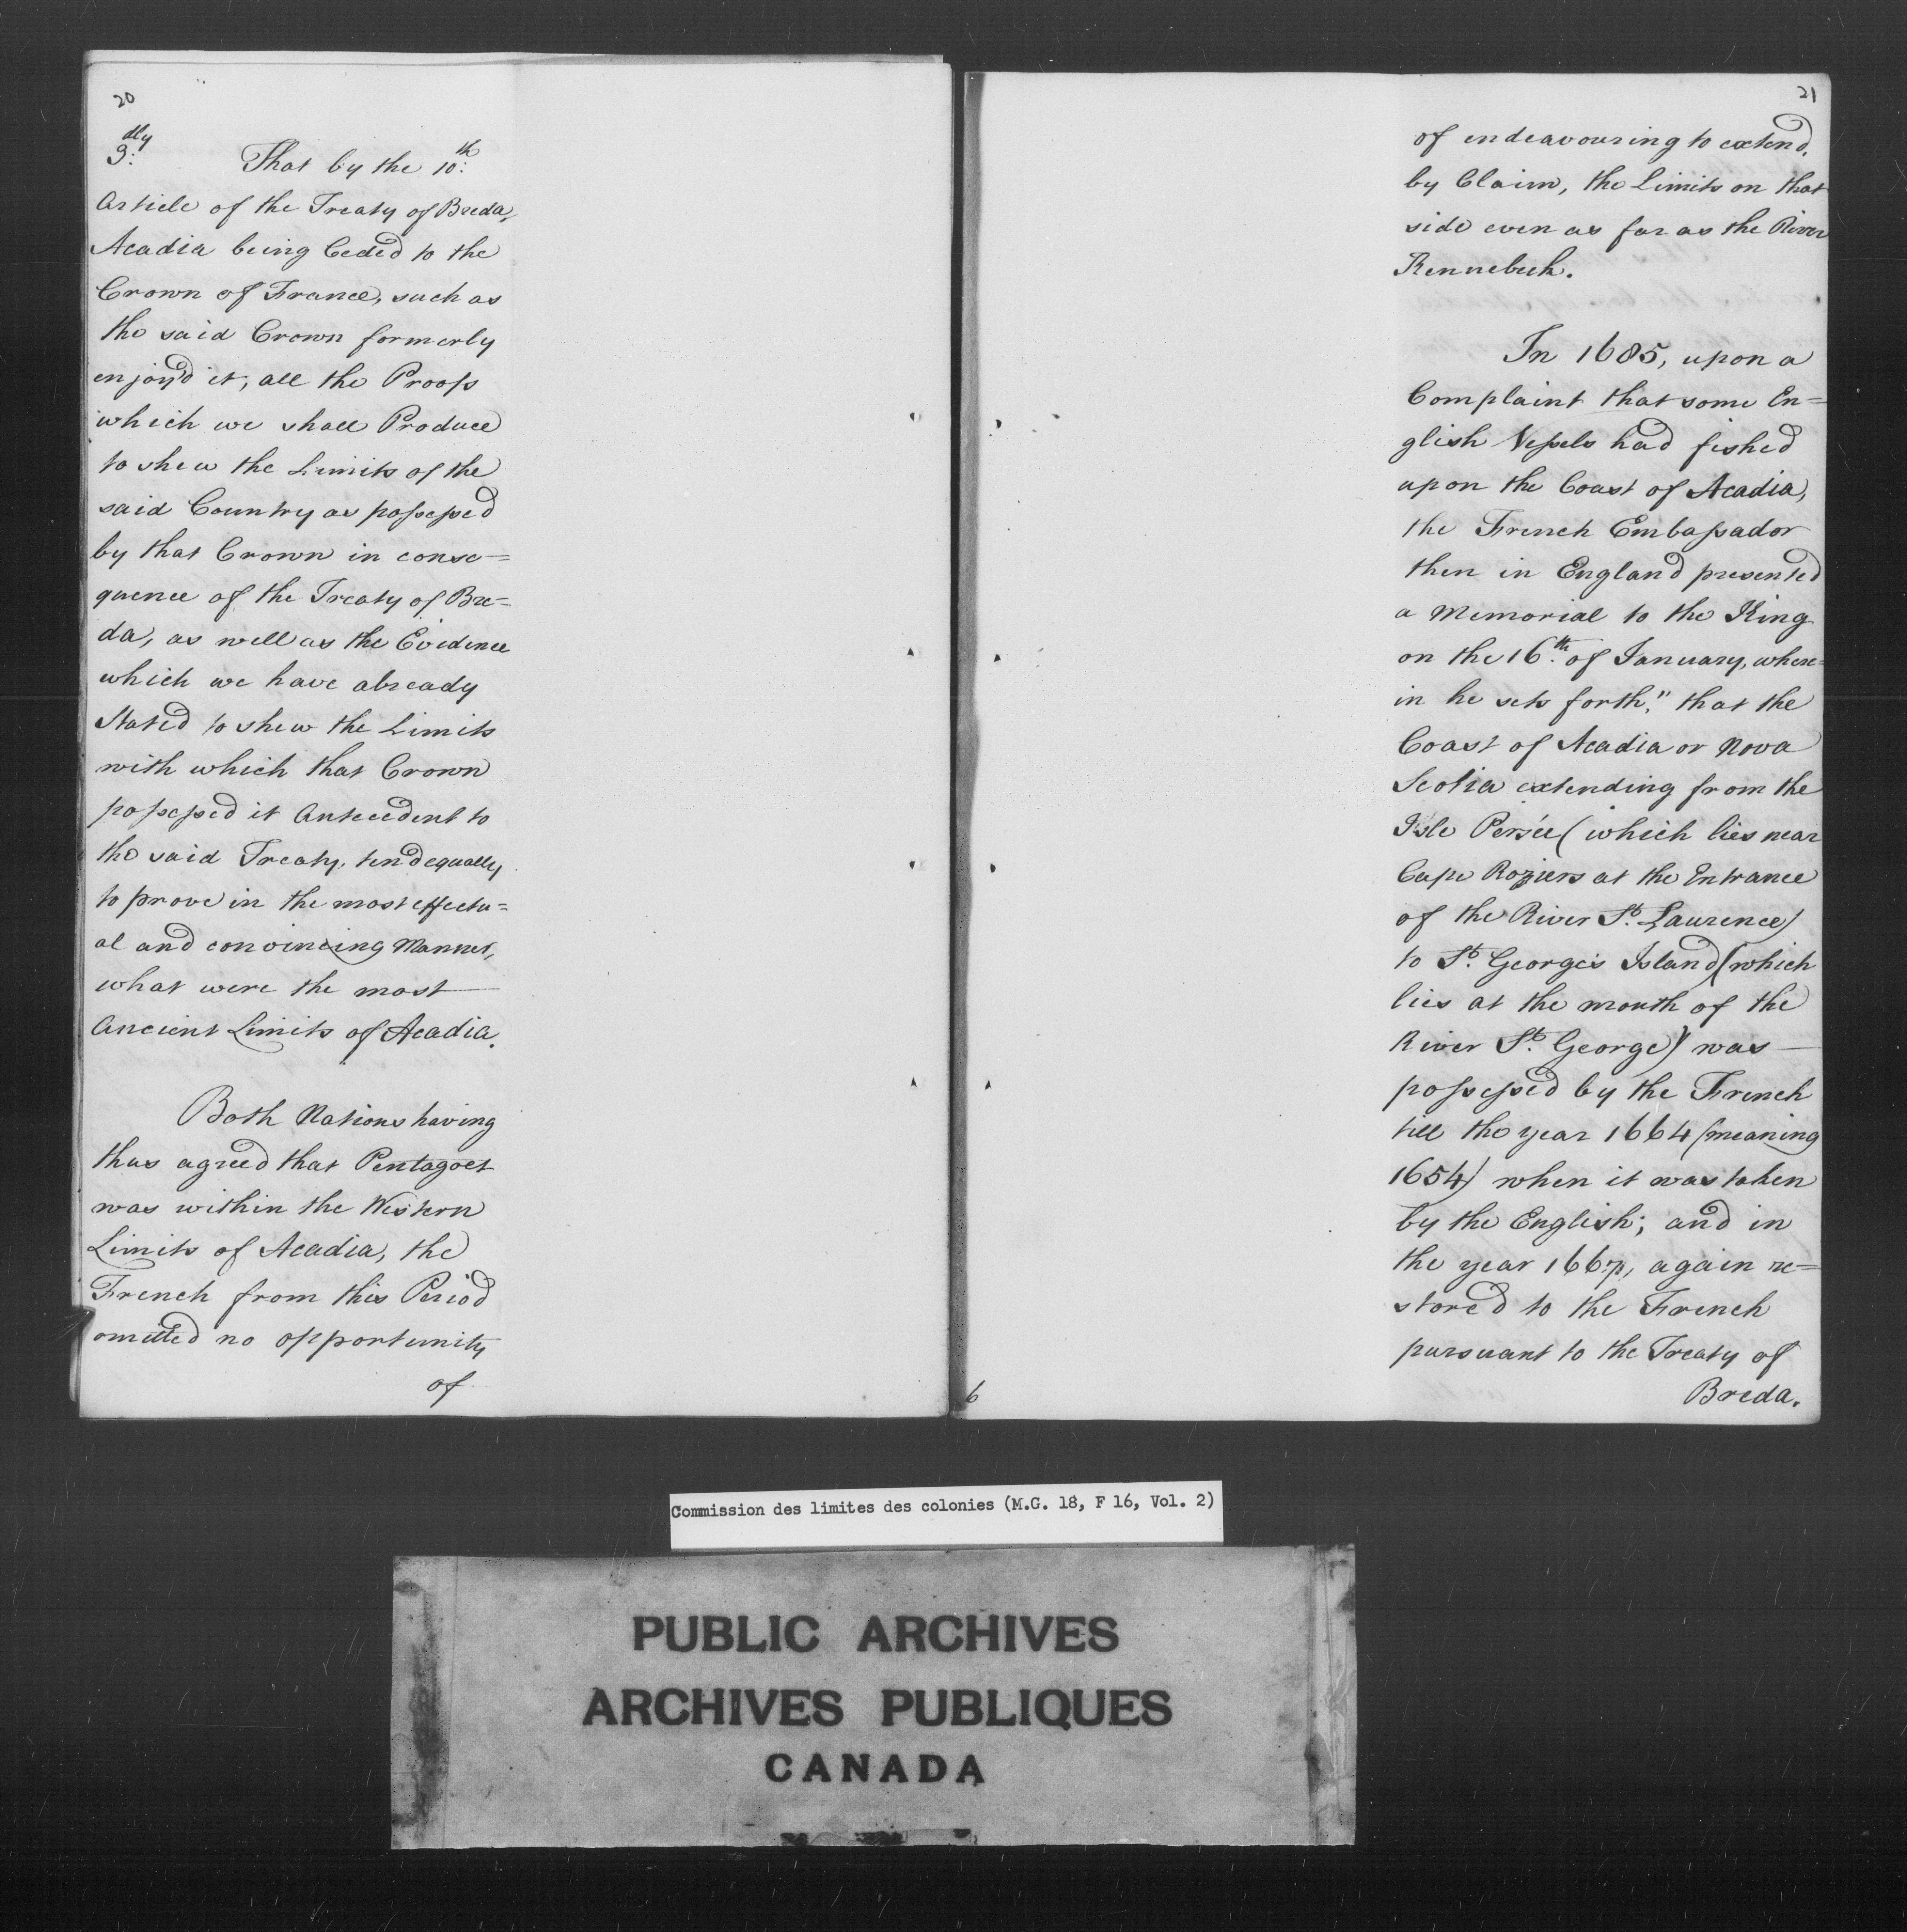 20
3:dly That by the 10:th
Article of the Treaty of Breda,
Acadia being Ceded to the
Crown of France, such as
the said Crown formerly
enjoy'd it, all the Proofs
which we shall Produce
to shew the Limits of the
said Country as possessed
by that Crown in conse=
quence of the Treaty of Bre=
da, as well as the Evidence
which we have already
Stated to shew the Limits
with which that Crown
possessed it Antecedent to
the said Treaty, tend equally
to prove in the most effectu=
al and convincing Manner,
what were the most
Ancient Limits of Acadia.
Both Nations having
thus agreed that Pentagoet
was within the Western
Limits of Acadia, the
French from this Period
omitted no opportunity
of
21
of endeavouring to extend,
by Claim, the Limits on that
side even as far as the River
Kennebeck.
In 1685, upon a
Complaint that some En=
glish Vessels had fished
upon the Coast of Acadia,
the French Embassador
then in England presented
a Memorial to the King
on the 16.th of January, where=
in he sets forth, "that the
Coast of Acadia or Nova
Scotia extending from the
Isle Persée (which lies near
Cape Roziers at the Entrance
of the River St. Laurence)
to St. George's Island (which
lies at the mouth of the
River St. George) was
possessed by the French
till the year 1664 (meaning
1654) when it was taken
by the English; and in
the year 1667, again re=
stored to the French
pursuant to the Treaty of
Breda.
6
Commission des limites des colonies (M.G. 18, F 16, Vol. 2)
PUBLIC ARCHIVES
ARCHIVES PUBLIQUES
CANADA